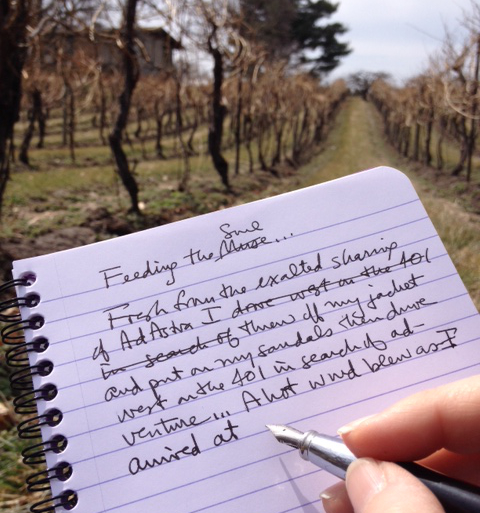 Soul
Feeding the Muse...
Fresh from the exalted sharing
of Ad Astra I drove west on the 401
in search of threw off my jacket
and put on my sandals then drove
west on the 401 in search of ad-
venture... A hot wind blew as I
arrived at